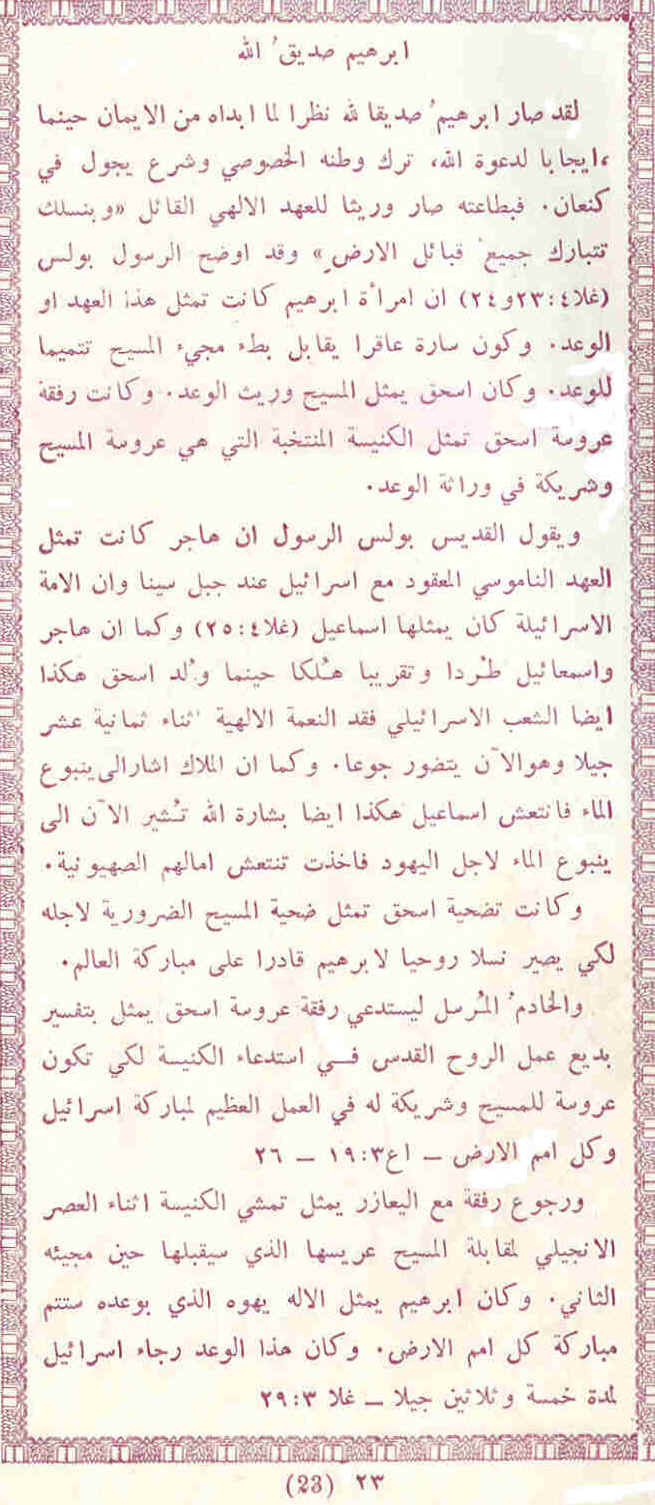 ابرهيم صديقُ الله
لقد صار ابرهيمُ صديقا لله نظرا لما ابداه من الايمان حينما
،ايجابا لدعوة الله، ترك وطنه الخصوصي وشرع يجول في
كنعان. فبطاعته صار وريثا للعهد الالهي القائل «وبنسلك
تتبارك جميعُ قبائل الارض» وقد اوضح الرسول بولس
(غلا٤:٢٣و٢٤) ان امرأة ابرهيم كانت تمثل هذا العهد او
الوعد. وكون سارة عاقرا يقابل بطء مجيء المسيح تتميما
للوعد. وكان اسحق يمثل المسيح وريث الوعد. وكانت رفقة
عروسة اسحق تمثل الكنيسة المنتخبة التي هي عروسة المسيح
وشريكة في وراثة الوعد.
ويقول القديس بولس الرسول ان هاجر كانت تمثل
العهد الناموسي المعقود مع اسرائيل عند جبل سينا وان الامة
الاسرائيلة كان يمثلها اسماعيل (غلا٤:٢٥) وكما ان هاجر
واسمعائيل طُردا وتقريبا هلُكا حينما وُلد اسحق هكذا
ايضا الشعب الاسرائيلي فقد النعمة الالهية اثناء ثمانية عشر
جيلا وهوالآن يتضور جوعا. وكما ان الملاك اشارالى ينبوع
الماء فانتعش اسماعيل هكذا ايضا بشارة الله تُشير الآن الى
ينبوع الماء لاجل اليهود فاخذت تنتعش امالهم الصهيونية.
وكانت تضحية اسحق تمثل ضحية المسيح الضرورية لاجله
لكي يصير نسلا روحيا لابرهيم قادرا على مباركة العالم.
والخادمُ المُرسل ليستدعي رفقة عروسة اسحق يمثل بتفسير
بديع عمل الروح القدس فــي استدعاء الكنيسة لكي تكون
عروسة للمسيح وشريكة له في العمل العظيم لمباركة اسرائيل
وكل امم الارض – اع٣:١٩ – ٢٦
ورجوع رفقة مع اليعازر يمثل تمشي الكنيسة اثناء العصر
الانجيلي لمقابلة المسيح عريسها الذي سيقبلها حين مجيئه
الثاني. وكان ابرهيم يمثل الاله يهوه الذي بوعده ستتم
مباركة كل امم الارض. وكان هذا الوعد رجاء اسرائيل
لمدة خمسة وثلاثين جيلا – غلا ٣:٢٩
٢٣ (23)